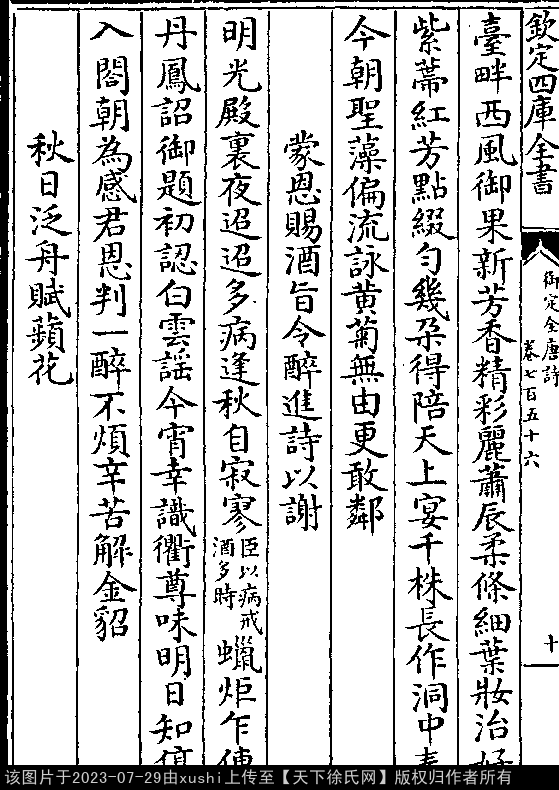 欽定四庫全書
御定全唐詩
卷七百五十六
十
臺畔西風御果新芳香精彩麗蕭辰柔條細葉妝治好
紫蔕紅芳點綴勻幾朶得陪天上宴千株長作洞中春
今朝聖藻偏流詠黄菊無由更敢鄰
蒙恩賜酒旨令醉進詩以謝
明光殿裏夜迢迢多病逢秋自寂寥
臣以病戒
酒多時
蠟炬乍傳
丹鳳詔御題初認白雲謡今宵幸識衢尊味明日知停
入閤朝為感君恩判一醉不煩辛苦解金貂
秋日泛舟賦蘋花
该图片于2023-07-29由xushi上传至【天下徐氏网】版权归作者所有